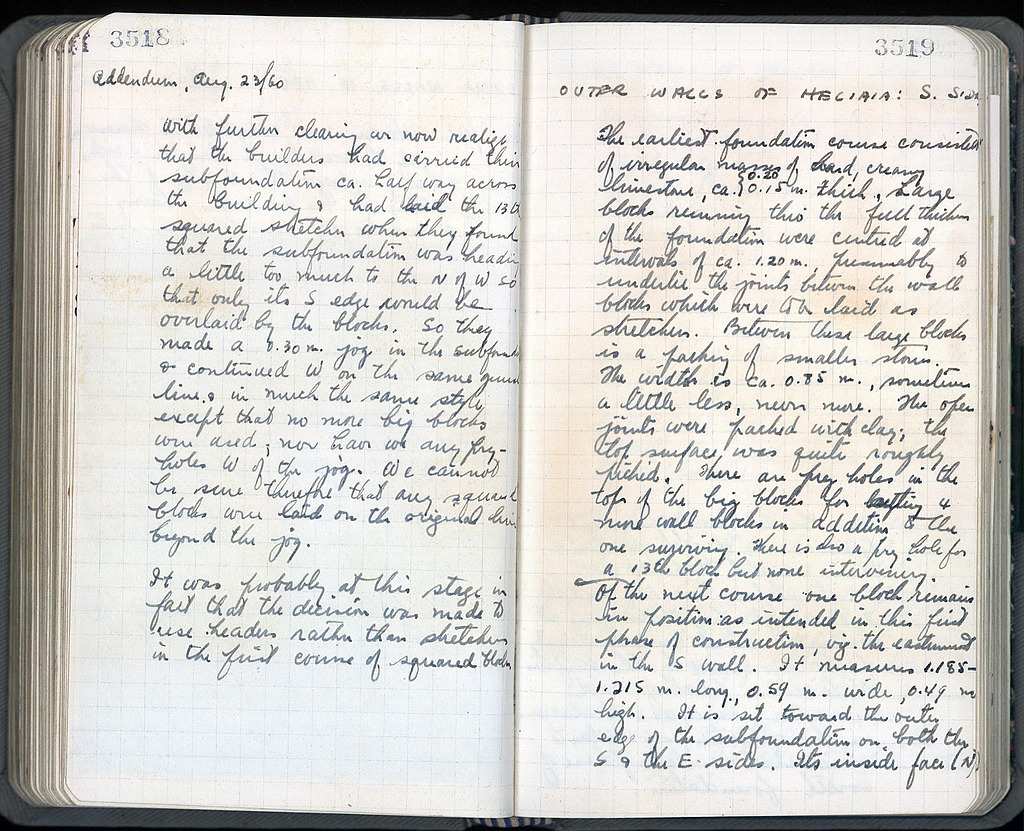 3518
Addendum, Aug. 23/60
With further clearing we now realize
that the builders had carried their
subfoundation ca. half way across
the building & had laid the 13th
squared stretcher when they found
that the subfoundation was heading
a little too much to the N of W so
that only its S edge would be
overlaid by the blocks. So they
made a 0.30 m. jog in the subfound
& continued W on the same general
line & in much the same style
except that no more big blocks
were used; nor have we any pry-
holes W of the jog. We cannot
be sure therefore that any squared
blocks were laid on the original line
beyond the jog.
It was probably at this stage in
fact that the decision was made to
use headers rather than stretchers
in the first course of squared blocks.
3519
OUTER WALLS OF HELIAIA: S. SIDE
The earliest foundation course consisted
of irregular masses of hard, creamy
limestone, ca. 0.15 m. 0.20 thick. Large
blocks running thro the full thickness
of the foundation were centred at
intervals of ca. 1.20 m. presumably to
underlie the joints between the wall
blocks which were to be laid as
stretchers. Between these large blocks
is a packing of smaller stones.
The width is ca. 0.85 m., sometimes
a little less, never more. The open
joints were packed with clay; the
top surface was quite roughly
picked. There are pry holes in the
tops of the big blocks for setting 4
more wall blocks in addition to the
one surviving. There is also a pry hole for
a 13th block but none intervening.
Of the next course one block remains
in position as intended in this first
phase of construction, viz. the easternmost
in the S wall. It measures 1.185-
1.215 m. long, 0.59 m. wide, 0.49 m
high. It is set toward the outer
edge of the subfoundation on both the
S & the E sides. Its inside face (N)